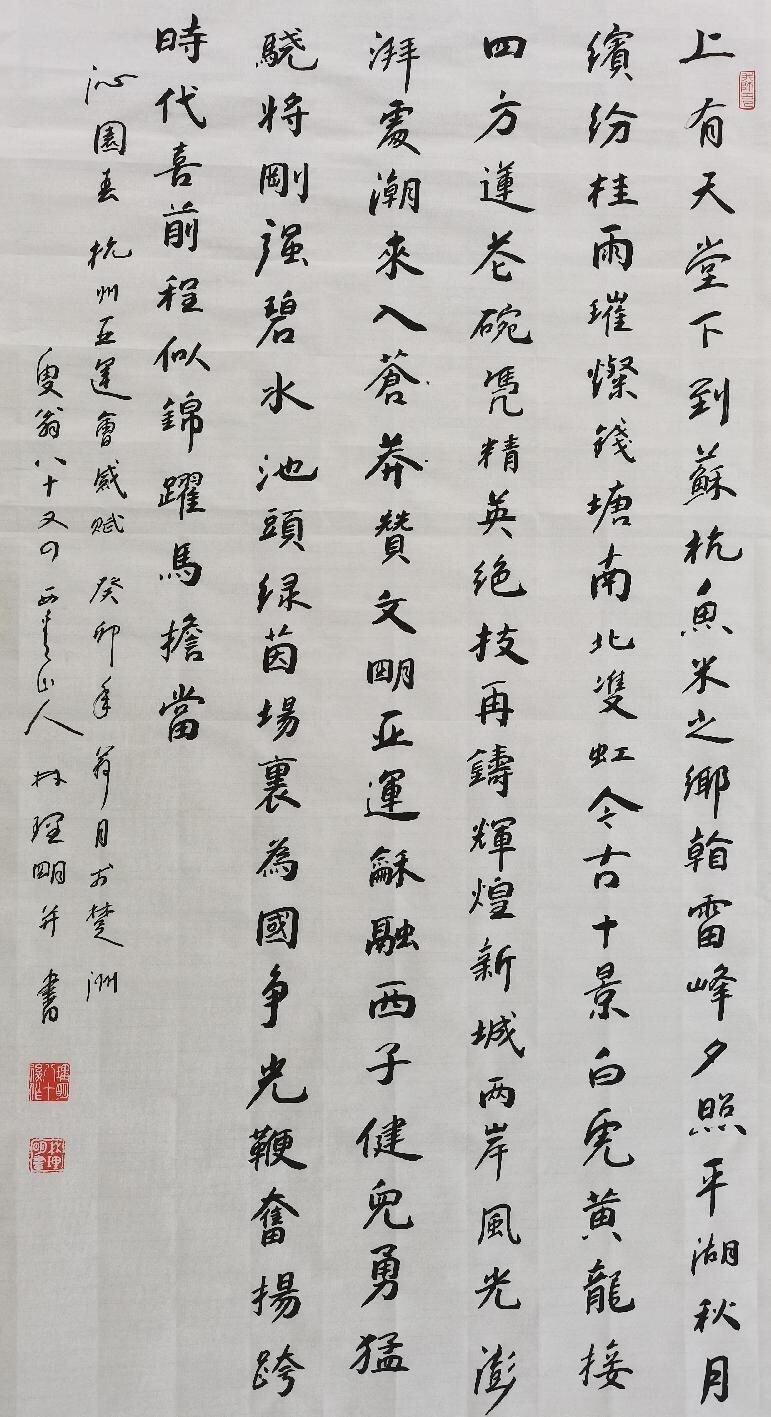 上有天堂下到蘇杭魚米之鄉翰雷峰夕照平湖秋月
繽紛桂雨璀燦錢塘南北雙虹今古十景白虎黄龍接
四方蓮花碗凭精英绝技再鑄輝煌新城两岸風光澎
湃處潮來入蒼莽贊文明亚運龢融西子健兒勇猛
驍將剛强碧水池頭绿茵場裏為國争光鞭奮揚跨
時代喜前程似錦躍馬擔當
沁園春杭州亚運會感賦癸卯年荷月於楚洲
叟翁八十又四西青山人林理明并書